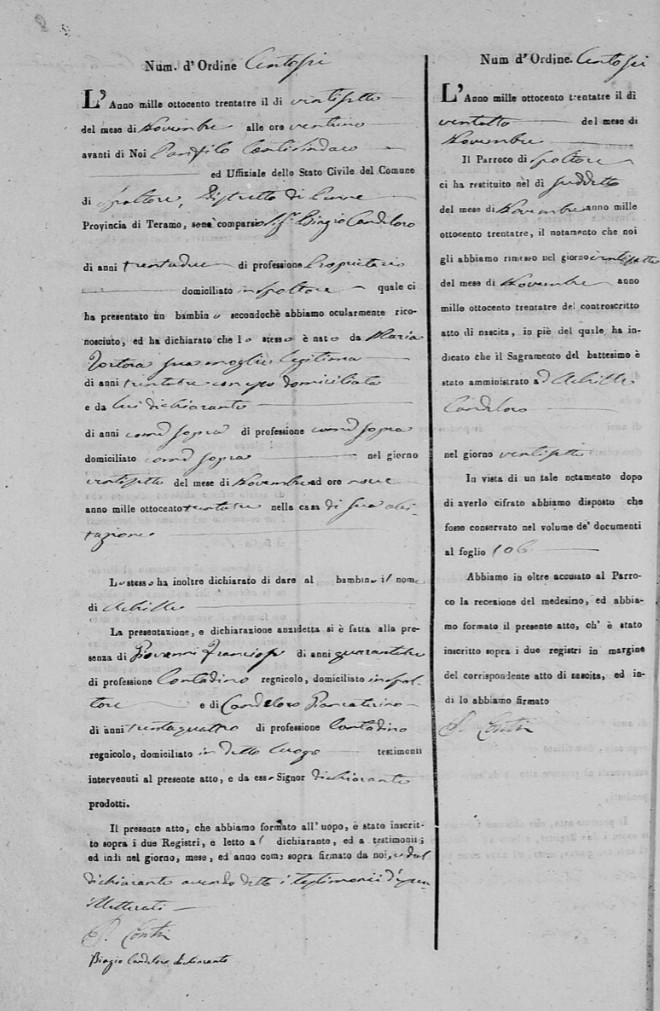 Num. d'Ordine Centosei
L'Anno mille ottocento trentatre il di ventisette
del mese di Novembre alle ore ventuno
avanti di Noi Panfilo Conti Sindaco
ed Uffiziale dello Stato Civile del Comune
di Spoltore, Distretto di Penne
Provincia di Teramo, sono comparso Sig.r Biagio Candeloro
di anni trentadue di professione Proprietario
domiciliato in Spoltore quale ci
ha presentato un bambino secondochè abbiamo ocularmente rico-
nosciuto, ed ha dichiarato che lo stesso è nato da Maria
Tortora sua moglie legittima
di anni trentatre con esso domiciliata
e da lui dichiarante
di anni come sopra di professione come sopra
domiciliato come sopra nel giorno
ventisette del mese di Novembre ad ore nove
anno mille ottocento trentatre nella casa di sua abi-
tazione
Lo stesso ha inoltre dichiarato di dare al bambino il nome
di Achille
La presentazione, e dichiarazione anzidetta si è fatta alla pre-
senza di Giovanni di anni quarantatre
di professione Contadino regnicolo, domiciliato in Spol-
tore e di Candeloro
di anni trentaquattro di professione Contadino
regnicolo, domiciliato in detto luogo testimenti
intervenuti al presente atto, e da esso Signor dichiarante
prodotti.
Il presente atto, che abbiamo formato all'uopo, è stato inscrit-
to sopra i due Registri, e letto al dichiarante, ed a testimonii;
ed indi nel giorno, mese, ed anno come sopra firmato da noi, e dal
dichiarante avendo detto i testimonii d'essere
illetterati
P. Conti
Biagio Candeloro dichiarante
Num d'Ordine. Centosei
L'Anno mille ottocento trentatre il di
ventotto del mese di
Novembre
Il Parroco di Spoltore
ci ha restituito nel di suddetto
del mese di Novembre anno mille
ottocento trentatre, il notamento che noi
gli abbiamo rimesso nel giorno ventisette
del mese di Novembre anno
mille ottocento trentatre del controscritto
atto di nascita, in piè del quale ha in-
dicato che il Sagramento del battesimo è
stato amministrato ad Achille
Candeloro
nel giorno ventisette
In vista di un tale notamento dopo
di averlo cifrato abbiamo disposto che
fosse conservato nel volume de' documenti
al foglio 106
Abbiamo in oltre accusato al Parro-
co la recezione del medesino, ed abbia-
mo formato il presente atto, ch' è stato
inscritto sopra i due registri in margine
del corrispondente atto di nascita, ed in-
di lo abbiamo firmato
P. Conti